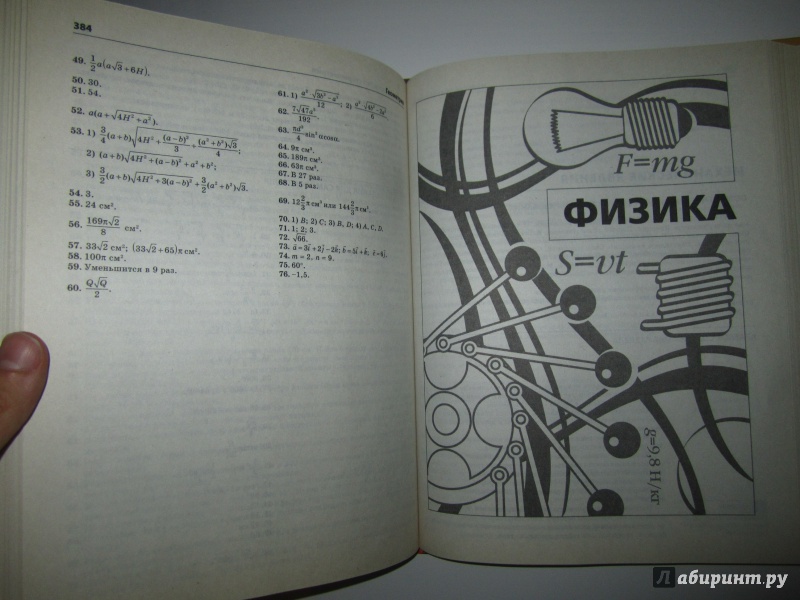 384
49. 1/2 a(a√3+6H).
50. 30.
51. 54.
52. a(a+√(4H²+a²)).
53. 1) 3/4 (a+b)√(4H²+(a−b)²/3)+(a²+b²)√3/4;
2) (a+b)√(4H²+(a−b)²)+a²+b²;
3) 3/2 (a+b)√(4H²+3(a−b)²)+3/2 (a²+b²)√3.
54. 3.
55. 24 см².
56. 169π√2/8 см².
57. 33√2 см²; (33√2+65)π см².
58. 100π см².
59. Уменьшится в 9 раз.
60. Q√Q/2.
61. 1) a²·√(3b²−a²)/12; 2)
62. 7√47a³/192.
63. πd³/4 sin²α cosα.
64. 9π см².
65. 189π см².
66. 63π см².
67. В 27 раз.
68. В 5 раз.
69. 12 2/3 π см³ или 144 2/3 π см³.
70. 1) B; 2) C; 3) B, D; 4) A, C, D.
71. 1; 2; 3.
72. √66.
73. a=3i+2j−2k; b=5i+k; c=8j.
74. m=2, n=9.
75. 60°.
76. −1,5.
F=mg
ФИЗИКА
S=vt
g=9,8 Н/кг
Лабиринт.ру